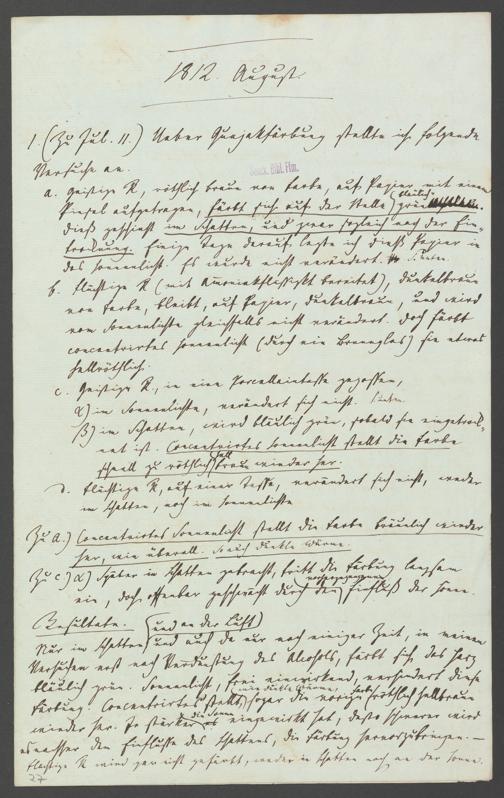 1812. August.
1. (Zu Jul. 11.) Ueber Guajakfärbung stellte ich folgende
Versuche an.
Senck. Bibl. Ffm.
a. Geistige R, röthlich braun von Farbe, auf Papier mit einem
Pinsel aufgetragen, färbt sich auf der Stelle bläulich grün
dieß geschieht im Schatten, und zwar sogleich nach der Ein-
trocknung. Einige Tage darauf legte ich dieß Papier in
das Sonnenlicht. Es wurde nicht verändert.
b. flüchtige R (mit Ammoniakflüssigkt bereitet), dunkelbraun
von Farbe, bleibt, auf Papier, dunkelbraun, und wird
vom Sonnenlichte gleichfalls nicht verändert. Doch färbt
concentrirtes Sonnenlicht (durch ein Brennglas) sie etwas
hellröthlich.
c. Geistige R, in eine Porcellaintasse gegossen,
α) im Sonnenlichte, verändert sich nicht.
β) im Schatten, wird bläulich grün, sobald sie eingetrock-
net ist. Concentrirtes Sonnenlicht stellt die Farbe
schnell zu röthlich hell braun wieder her.
d. flüchtige R, auf einer Tasse, verändert sich nicht, weder
im Schatten, noch im Sonnenlichte
Zu a.) Concentrirtes Sonnenlicht stellt die Farbe bräunlich wieder
her, wie überall. So auch dunkle Wärme.
Zu c) α) Später in Schatten gebracht, tritt die Färbung langsam
ein, doch offenbar geschwächt durch den vorhergegangenen Einfluß der Sonne.
Resultate. (und an der Luft)
Nur im Schatten und auch da nur nach einiger Zeit, in meinen
Versuchen erst nach Verdunstung des Alcohols, färbt sich das Harz
bläulich grün. Sonnenlicht, frei einwirkend, verhindert diese
Färbung. Concentrirtes stellt, wie dunkle Wärme, sogar die vorige Farbe röthlich hellbraun
wieder her. Je stärker die Sonne eingewirkt hat, desto schwerer wird
es nachher dem Einflusse des Schattens, die Färbung hervorzubringen. —
flüchtige R wird gar nicht gefärbt, weder im Schatten noch an der Sonne.
27